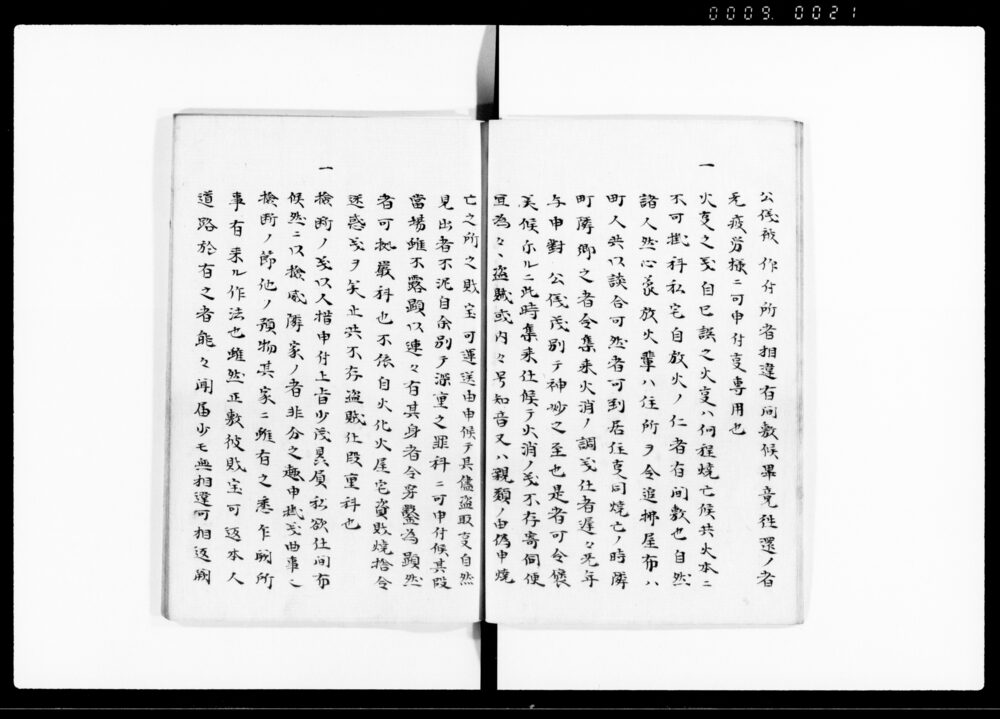 0009. 0021
公儀被 作付所者相違有间敷候畢竟往還ノ者
无疲労様ニ可申付㕝専用也
一 火㕝之㦯自已誤之火㕝ハ何程焼亡候共火本ニ
不可捲科私宅自放火ノ仁者有间敷也自然
諸人然心蒙放火輩ハ住所ヲ令追拂屋布ハ
町人共以談合可然者可到居住㕝同焼亡ノ時隣
町隣郷之者令集来火消ノ調㦯仕者遅々先年
与申對 公儀茂別テ神妙之至也是者可令褒
美候尓ルニ此時集来仕候テ火消ノ㦯不存寄伺便
宜為々、盗賊或内々号知音又ハ親類ノ由偽申焼
亡之所之賊宝可運送由申候テ具儘盗取㕝自然
見出者不泥自余別テ深重之罪科ニ可申付候其段
當場雖不露顕以連々有其身者令穿鑿為顕然
者可拠嚴科也不依自火化火屋宅資財焼捨令
迷惑㦯ヲ矣止共不存盗賊仕段重科也
一 撿断ノ㦯以人指申付上者少茂贔屓私欲仕间布
候然ニ以撿威隣家ノ者非分之趣申掠㦯曲事之
撿断ノ節他ノ預物其家ニ雖有之悉乍闕所
事有来ル作法也雖然正敷彼財宝可返本人
道路於有之者能々聞届少モ無相違可相返闕